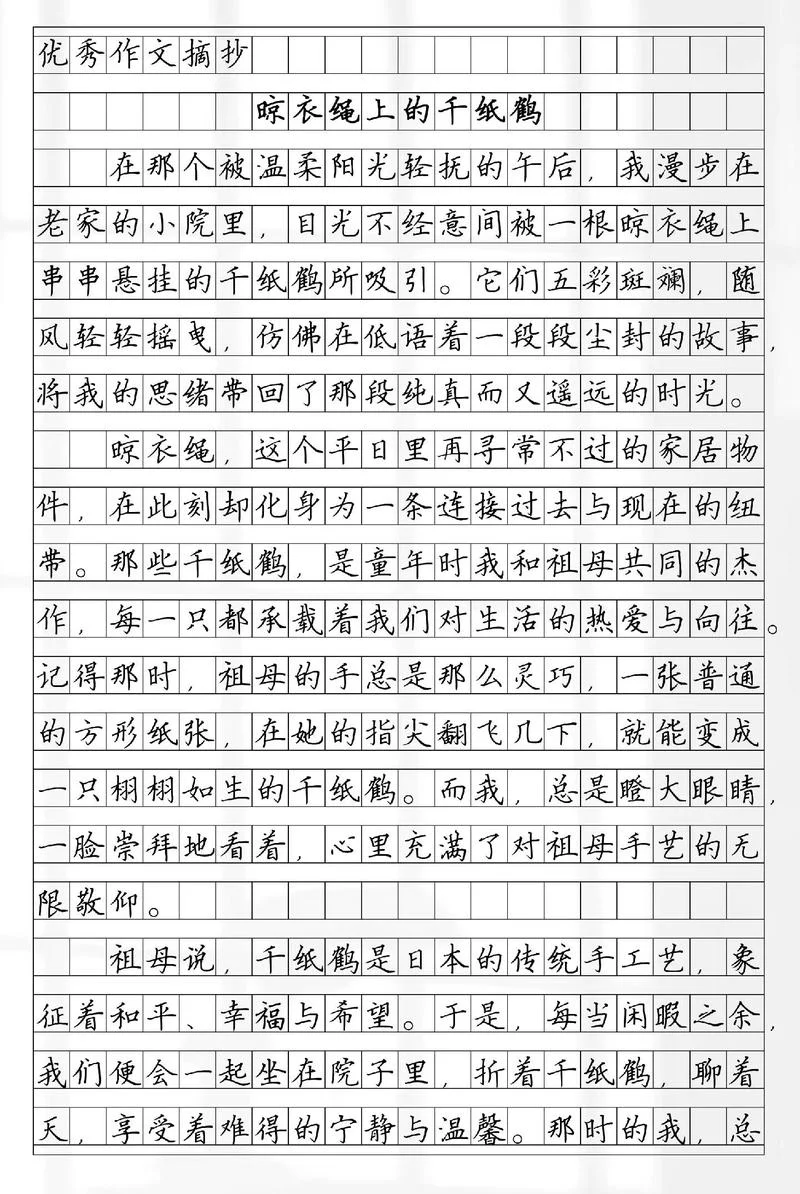 优秀作文摘抄
晾衣绳上的千纸鹤
在那个被温柔阳光轻抚的午后，我漫步在
老家的小院里，目光不经意间被一根晾衣绳上
串串悬挂的千纸鹤所吸引。它们五彩斑斓，随
风轻轻摇曳，仿佛在低语着一段段尘封的故事，
将我的思绪带回了那段纯真而又遥远的时光。
晾衣绳，这个平日里再寻常不过的家居物
件，在此刻却化身为一条连接过去与现在的纽
带。那些千纸鹤，是童年时我和祖母共同的杰
作，每一只都承载着我们对生活的热爱与向往。
记得那时，祖母的手总是那么灵巧，一张普通
的方形纸张，在她的指尖翻飞几下，就能变成
一只栩栩如生的千纸鹤。而我，总是瞪大眼睛，
一脸崇拜地看着，心里充满了对祖母手艺的无
限敬仰。
祖母说，千纸鹤是日本的传统手工艺，象
征着和平、幸福与希望。于是，每当闲暇之余，
我们便会一起坐在院子里，折着千纸鹤，聊着
天，享受着难得的宁静与温馨。那时的我，总